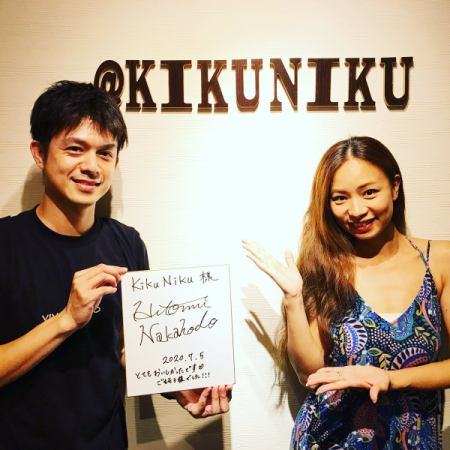 @KIKUNIKU
Kiku Niku 様
Hitomi
Nakahodo
2020.7.5
とてもおいしかったです
ごちそう様でした!!!